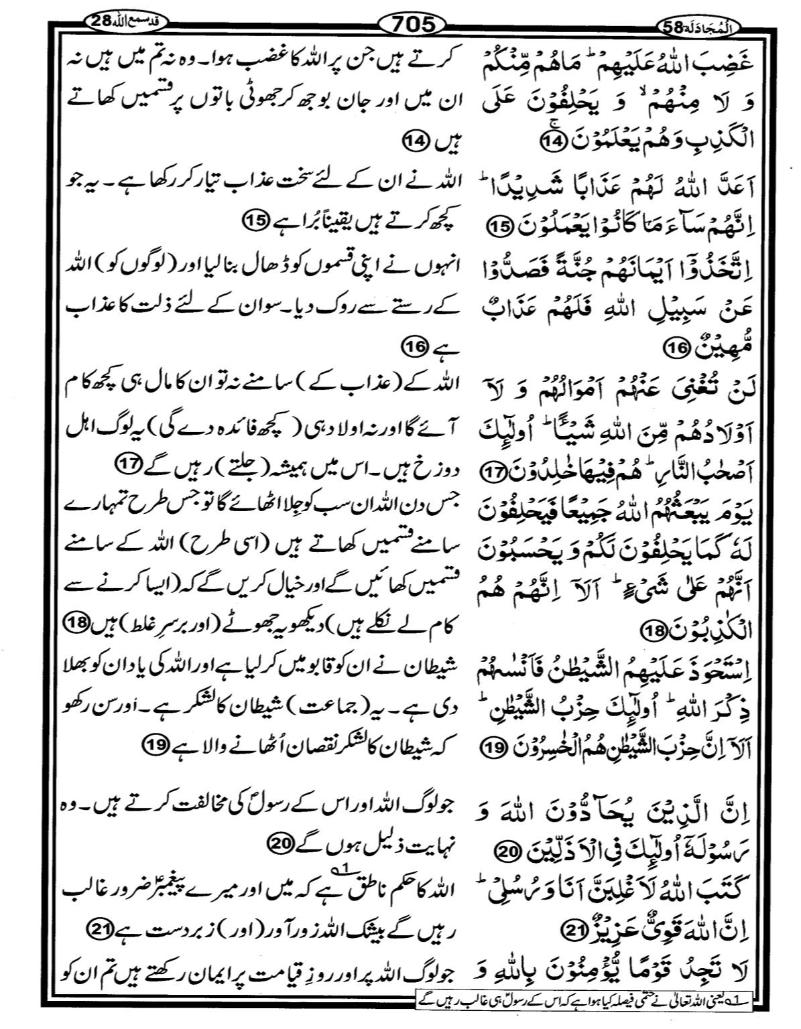 اَلْمُجَادَلَة 58
705
قد سمع اللہ 28
غَضِبَ اللّٰهُ عَلَيْهِمْ ؕ مَا هُمْ مِّنْكُمْ
وَ لَا مِنْهُمْ ۙ وَ يَحْلِفُوْنَ عَلَى
الْكَذِبِ وَهُمْ يَعْلَمُوْنَ ۚ 14
اَعَدَّ اللّٰهُ لَهُمْ عَذَابًا شَدِيْدًا ؕ
اِنَّهُمْ سَآءَ مَا كَانُوْا يَعْمَلُوْنَ 15
اِتَّخَذُوْۤا اَيْمَانَهُمْ جُنَّةً فَصَدُّوْا
عَنْ سَبِيْلِ اللّٰهِ فَلَهُمْ عَذَابٌ
مُّهِيْنٌ 16
لَنْ تُغْنِىَ عَنْهُمْ اَمْوَالُهُمْ وَ لَاۤ
اَوْلَادُهُمْ مِّنَ اللّٰهِ شَيْـًٔا ؕ اُولٰٓئِكَ
اَصْحٰبُ النَّارِ ؕ هُمْ فِيْهَا خٰلِدُوْنَ 17
يَوْمَ يَبْعَثُهُمُ اللّٰهُ جَمِيْعًا فَيَحْلِفُوْنَ
لَهٗ كَمَا يَحْلِفُوْنَ لَكُمْ وَ يَحْسَبُوْنَ
اَنَّهُمْ عَلٰى شَىْءٍ ؕ اَلَاۤ اِنَّهُمْ هُمُ
الْكٰذِبُوْنَ 18
اِسْتَحْوَذَ عَلَيْهِمُ الشَّيْطٰنُ فَاَنْسٰىهُمْ
ذِكْرَ اللّٰهِ ؕ اُولٰٓئِكَ حِزْبُ الشَّيْطٰنِ ؕ
اَلَاۤ اِنَّ حِزْبَ الشَّيْطٰنِ هُمُ الْخٰسِرُوْنَ 19
اِنَّ الَّذِيْنَ يُحَآدُّوْنَ اللّٰهَ وَ
رَسُوْلَهٗۤ اُولٰٓئِكَ فِى الْاَذَلِّيْنَ 20
كَتَبَ اللّٰهُ لَاَغْلِبَنَّ اَنَا وَ رُسُلِىْ ؕ
اِنَّ اللّٰهَ قَوِىٌّ عَزِيْزٌ 21
لَا تَجِدُ قَوْمًا يُّؤْمِنُوْنَ بِاللّٰهِ وَ
کرتے ہیں جن پر اللہ کا غضب ہوا۔ وہ نہ تم میں ہیں نہ
ان میں اور جان بوجھ کر جھوٹی باتوں پر قسمیں کھاتے
ہیں 14
اللہ نے ان کے لئے سخت عذاب تیار کر رکھا ہے۔ یہ جو
کچھ کرتے ہیں یقیناً بُرا ہے 15
انہوں نے اپنی قسموں کو ڈھال بنا لیا اور (لوگوں کو) اللہ
کے رستے سے روک دیا۔ سو ان کے لئے ذلت کا عذاب
ہے 16
اللہ کے (عذاب کے) سامنے نہ تو ان کا مال ہی کچھ کام
آئے گا اور نہ اولاد ہی (کچھ فائدہ دے گی) یہ لوگ اہل
دوزخ ہیں۔ اس میں ہمیشہ (جلتے) رہیں گے 17
جس دن اللہ ان سب کو جِلا اٹھائے گا تو جس طرح تمہارے
سامنے قسمیں کھاتے ہیں (اسی طرح) اللہ کے سامنے
قسمیں کھائیں گے اور خیال کریں گے کہ (ایسا کرنے سے
کام لے نکلے ہیں) دیکھو یہ جھوٹے (اور برسرِ غلط) ہیں 18
شیطان نے ان کو قابو میں کر لیا ہے اور اللہ کی یاد ان کو بھلا
دی ہے۔ یہ (جماعت) شیطان کا لشکر ہے۔ اور سن رکھو
کہ شیطان کا لشکر نقصان اُٹھانے والا ہے 19
جو لوگ اللہ اور اس کے رسولؐ کی مخالفت کرتے ہیں۔ وہ
نہایت ذلیل ہوں گے 20
اللہ کا حکم ناطق ہے 1؎ کہ میں اور میرے پیغمبرؑ ضرور غالب
رہیں گے بیشک اللہ زور آور (اور) زبردست ہے 21
جو لوگ اللہ پر اور روزِ قیامت پر ایمان رکھتے ہیں تم ان کو
1؎ یعنی اللہ تعالیٰ نے حتمی فیصلہ کیا ہوا ہے کہ اس کے رسول ہی غالب رہیں گے